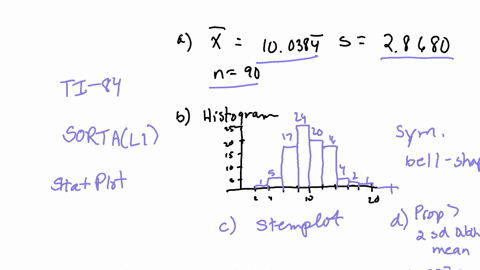 a) x̄ = 10.0384 s = 2.8680
n = 90
TI-84
SORTA(L1)
StatPlot
b) Histogram
24
25
20
15
10
5
1
5
17
20
4
2
1
2
4
10
20
Sym.
bell-shap
c) Stemplot
d) Prop >
2 sd
mean